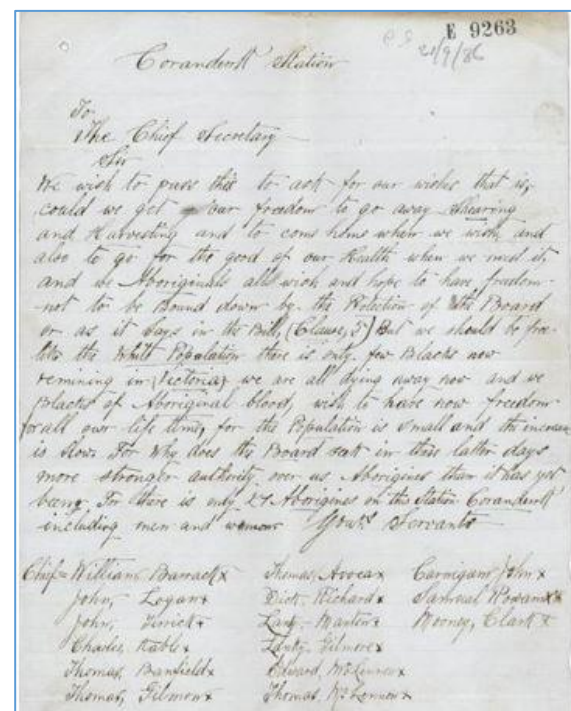 E 9263
21/9/86
Coranderrk Station
To
The Chief Secretary
Sir
We wish to pass this to ask for our wishes that is,
could we get our freedom to go away Shearing
and Harvesting and to come home when we wish and
also to go for the good of our Health when we need it
and we Aboriginals all wish and hope to have freedom
not to be bound down by the Protection of the Board
or as it says in the Bill, (Clause, 5) But we should be free
like the White Population there is only few Blacks now
remining in (Victoria) we are all dying away now and we
Blacks of Aboriginal blood, wish to have now freedom
for all our life time, for the Population is small and the increase
is slow. For Why does the Board seek in these latter days
more stronger authority over us Aborigines than it has yet
being. For there is only Aborigines on this Station Coranderrk
including men and women Yours Servants
Chief = William, Barrack x Thomas, Avoca x John x
John, Logan x Dick, Richard x x
John, Terrick x Lanky, Manton x Mooney, Clark x
Charles, x Gilmore x
Thomas, Banfield x Edward, McLennon x
Thomas, Gilmore x Thomas, McLennon x